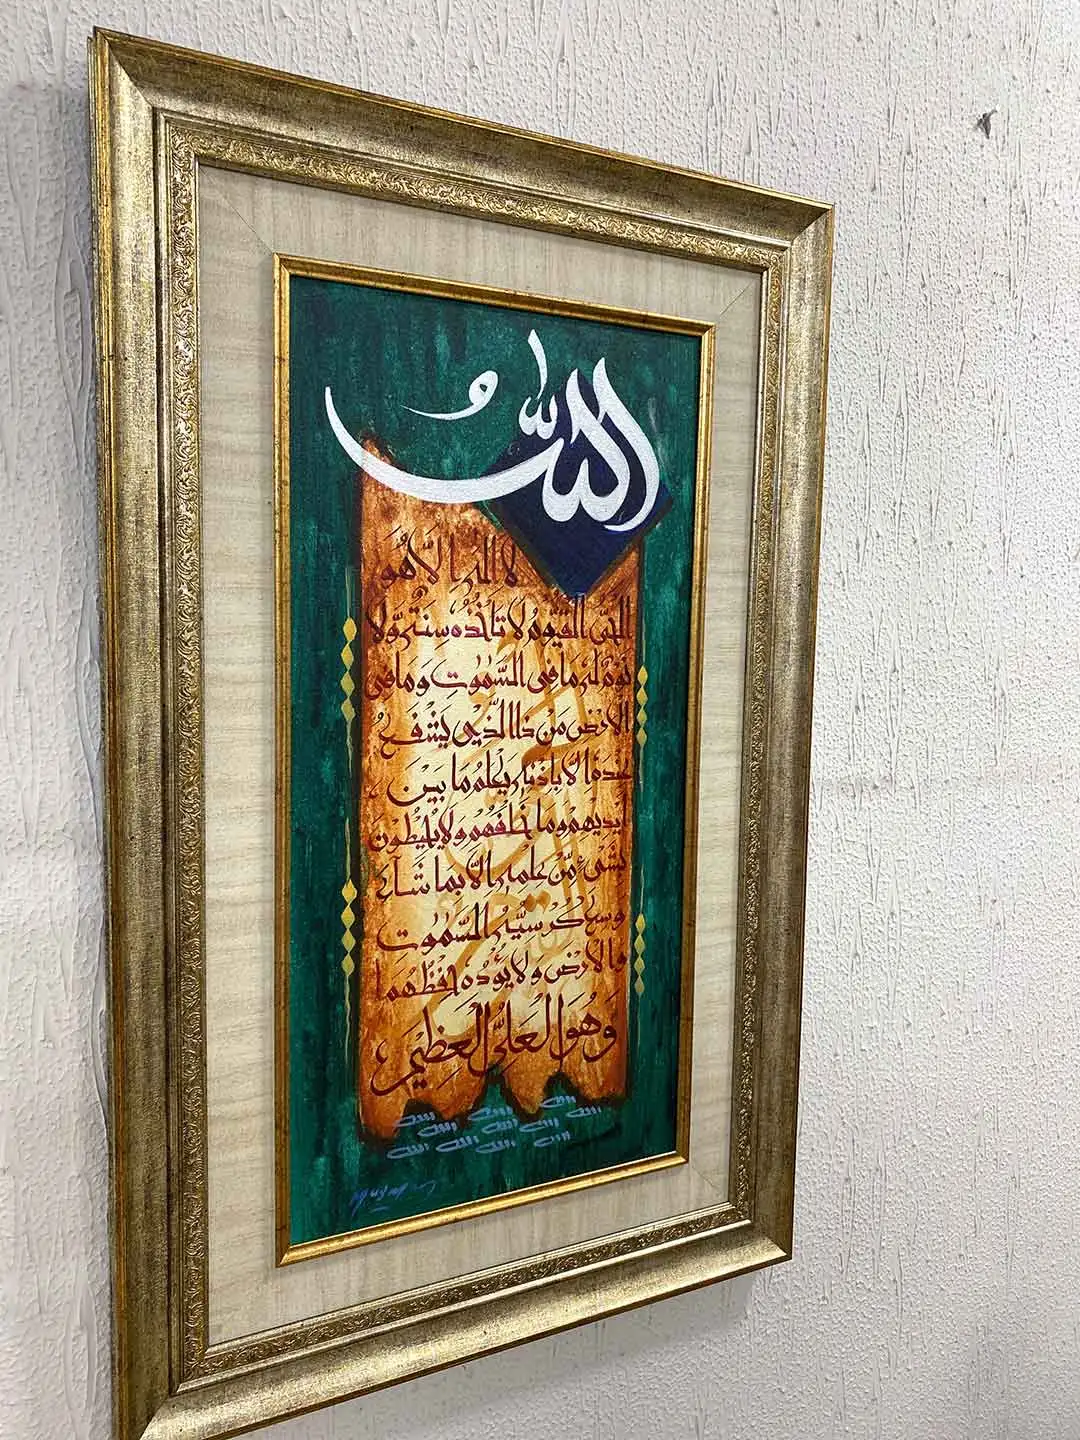 اللهُ
لَا إِلٰهَ إِلَّا هُوَ
الْحَيُّ الْقَيُّومُ لَا تَأْخُذُهُ سِنَةٌ وَّلَا
نَوْمٌ لَهُ مَا فِي السَّمٰوٰتِ وَمَا فِي
الْاَرْضِ مَنْ ذَا الَّذِي يَشْفَعُ
عِنْدَهُ اِلَّا بِاِذْنِهِ يَعْلَمُ مَا بَيْنَ
اَيْدِيهِمْ وَمَا خَلْفَهُمْ وَلَا يُحِيْطُوْنَ
بِشَيْءٍ مِّنْ عِلْمِهِ اِلَّا بِمَا شَآءَ
وَسِعَ كُرْسِيُّهُ السَّمٰوٰتِ
وَالْاَرْضَ وَلَا يَؤُدُهُ حِفْظُهُمَا
وَهُوَ الْعَلِيُّ الْعَظِيْمُ